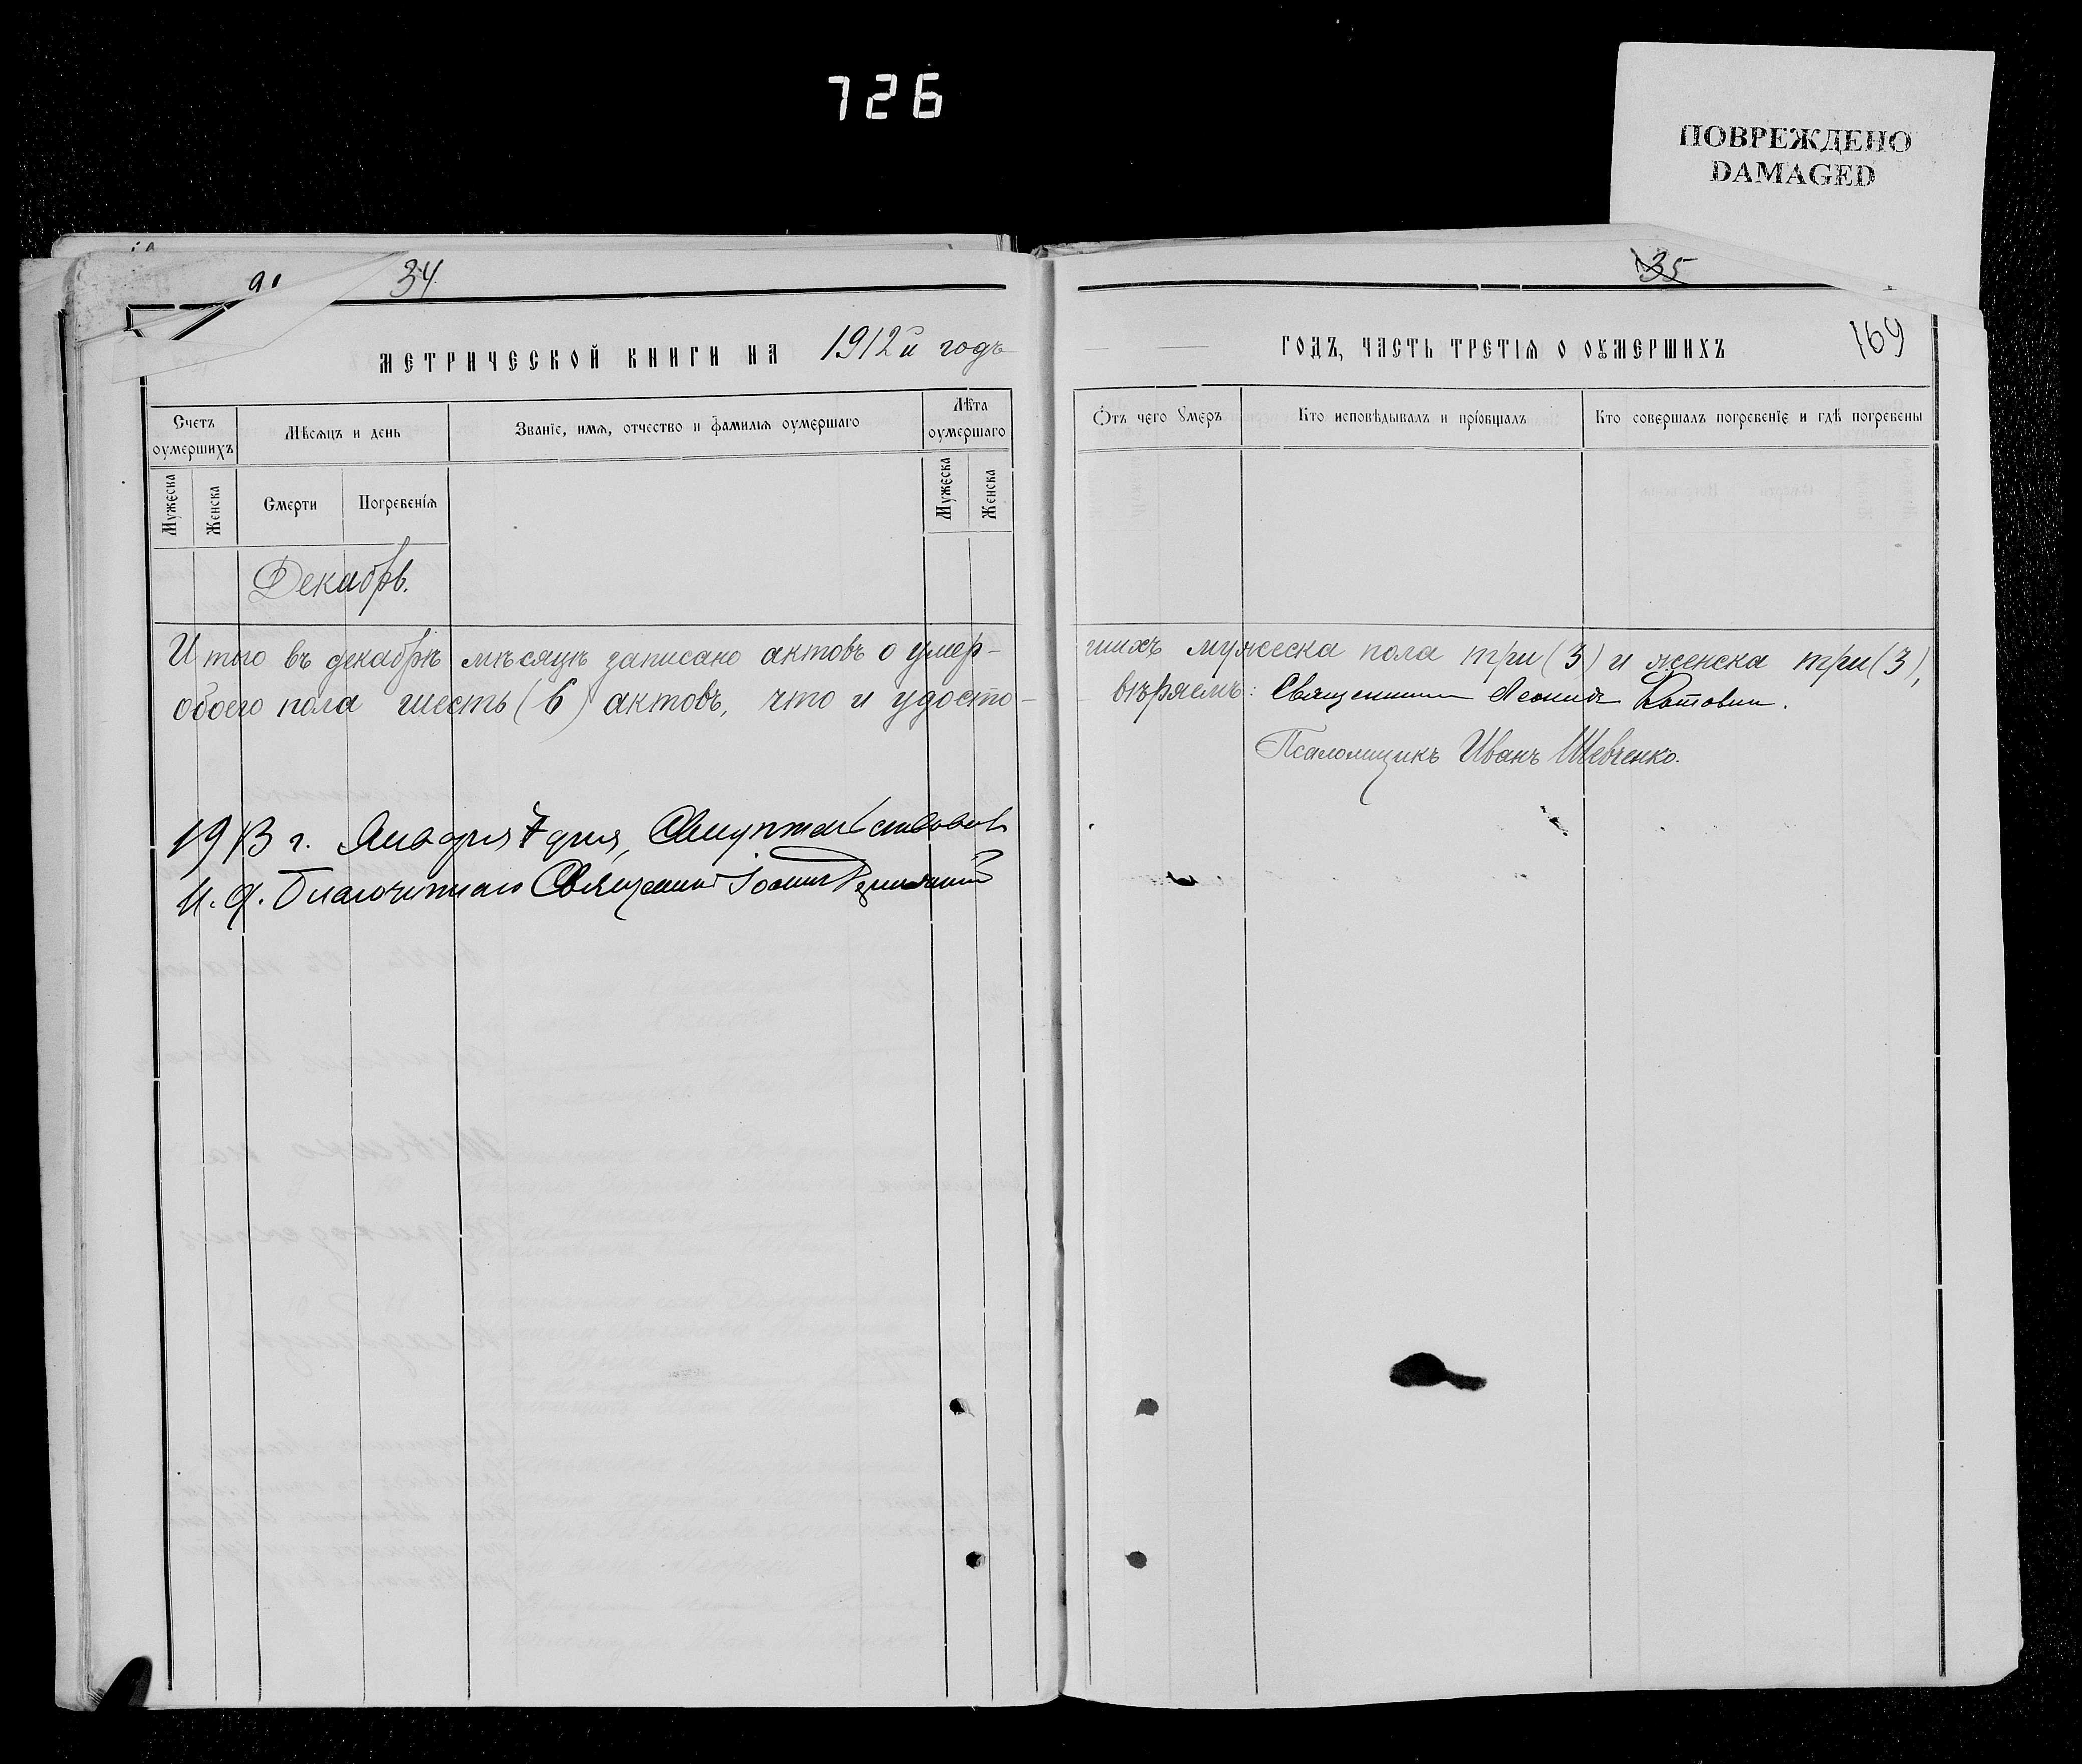 726
ПОВРЕЖДЕНО
DAMAGED
34
35
169
МЕТРИЧЕСКОЙ КНИГИ НА 1912й годъ
ГОДЪ, ЧАСТЬ ТРЕТІѦ О ОУМЕРШИХЪ
Счетъ оумершихъ
Мѣсѧцъ и день
Званіе, имѧ, отчество и фамилїѧ оумершаго
Лѣта оумершаго
Отъ чего Умеръ
Кто исповѣдывалъ и прїобщалъ
Кто совершалъ погребенїе и гдѣ погребены
Мужеска
Женска
Смерти
Погребенїѧ
Мужеска
Женска
Декабрь.
Итого въ декабрѣ мѣсяцѣ записано актовъ о умер-
шихъ мужеска пола три (3) и женска три (3),
обоего пола шесть (6) актовъ, что и удосто-
вѣряемъ: Священникъ Леонидъ Котовичъ.
Псаломщикъ Иванъ Шевченко.
1913 г. Января 7 дня,
И. д. Благочиннаго Священникъ Іоаннъ